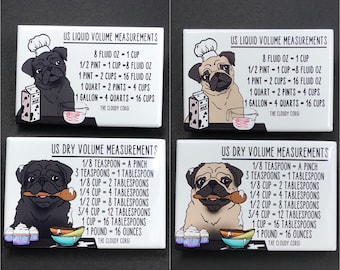 US LIQUID VOLUME MEASUREMENTS
8 FLUID OZ = 1 CUP
1/2 PINT = 1 CUP = 8 FLUID OZ
1 PINT = 2 CUPS = 16 FLUID OZ
1 QUART = 2 PINTS = 4 CUPS
1 GALLON = 4 QUARTS = 16 CUPS
THE CLOUDY CORGI
US LIQUID VOLUME MEASUREMENTS
8 FLUID OZ = 1 CUP
1/2 PINT = 1 CUP = 8 FLUID OZ
1 PINT = 2 CUPS = 16 FLUID OZ
1 QUART = 2 PINTS = 4 CUPS
1 GALLON = 4 QUARTS = 16 CUPS
THE CLOUDY CORGI
US DRY VOLUME MEASUREMENTS
1/8 TEASPOON = A PINCH
3 TEASPOONS = 1 TABLESPOON
1/8 CUP = 2 TABLESPOONS
1/4 CUP = 4 TABLESPOONS
1/2 CUP = 8 TABLESPOONS
3/4 CUP = 12 TABLESPOONS
1 CUP = 16 TABLESPOONS
1 POUND = 16 OUNCES
THE CLOUDY CORGI
US DRY VOLUME MEASUREMENTS
1/8 TEASPOON = A PINCH
3 TEASPOONS = 1 TABLESPOON
1/8 CUP = 2 TABLESPOONS
1/4 CUP = 4 TABLESPOONS
1/2 CUP = 8 TABLESPOONS
3/4 CUP = 12 TABLESPOONS
1 CUP = 16 TABLESPOONS
1 POUND = 16 OUNCES
THE CLOUDY CORGI